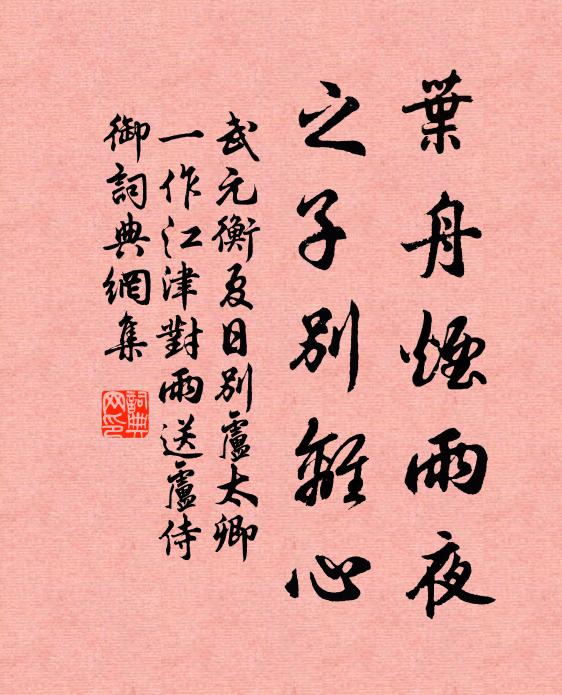 葉舟煙雨夜
之子別離心
武元衡夏日別盧太卿
一作江津對雨送盧侍
御詞典網集
詞典
网印